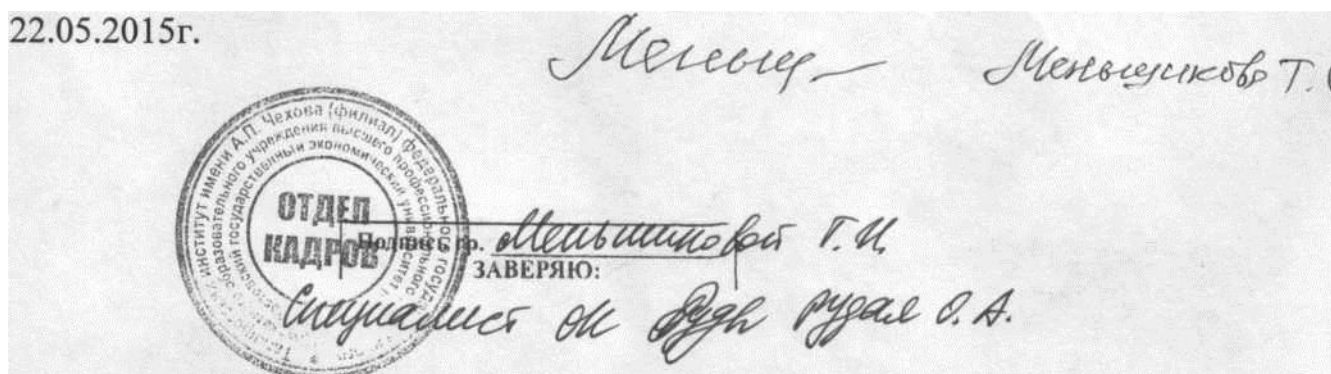 22.05.2015г.
Меньщ Меньщикова Т.
институт имени А.П. Чехова (филиал) федерального госуд
образовательного учреждения высшего профессионального
государственный экономический университет
ОТДЕЛ
КАДРОВ
Подпись гр. Меньшиковой Т. И.
ЗАВЕРЯЮ:
Специалист ОК Рудая О. А.